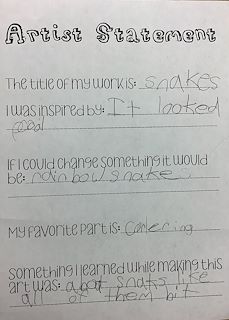 Artist Statement
The title of my work is: snakes
I was inspired by: It looked
cool
If I could change something it would
be: rainbow snake
My favorite part is: Colering
Something I learned while making this
art was: abot snaks like
all of them bit